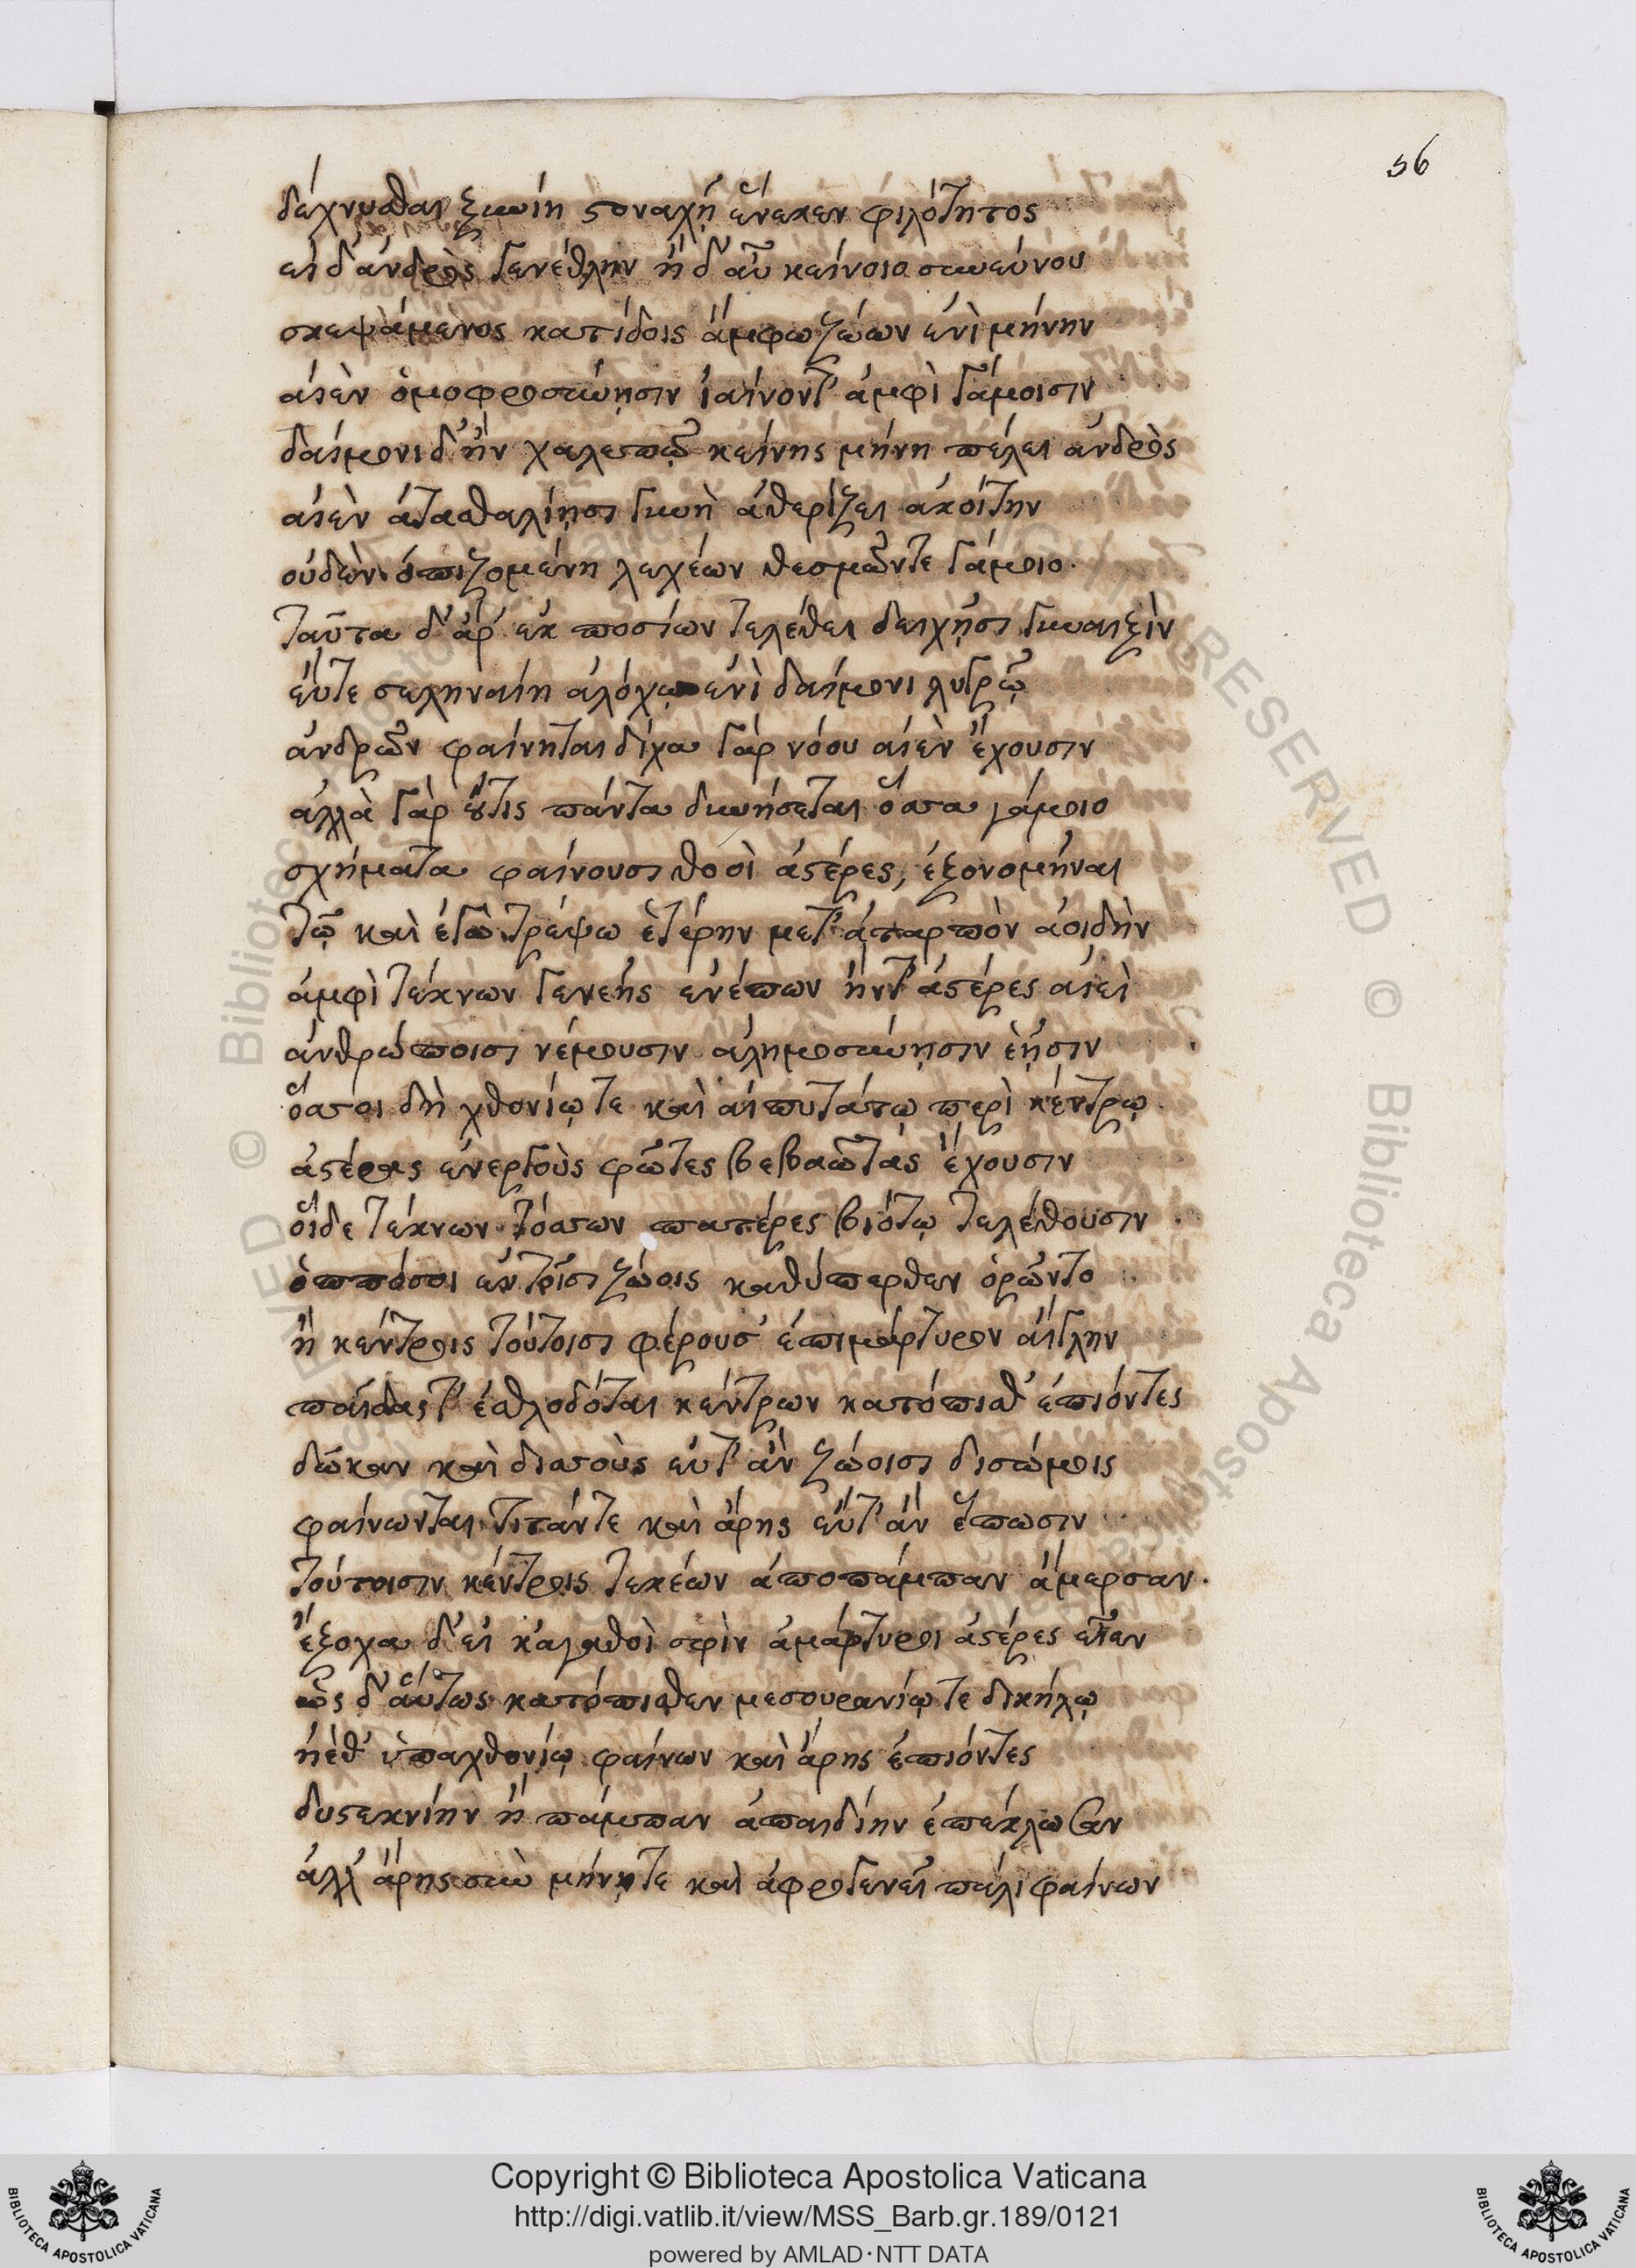 56
δάχνυσθαι ξυνίη στοναχῇ ἕνεκεν φιλότητος
εἰ δ' ἀνδρὸς γενέθλην ἠ δ' αὖ κείνοιο συνεύνου
σκεψάμενος κατίδοις ἄμφω ζώων ἐνὶ μήνην
αἰὲν ὁμοφροσύνῃσιν ἰαίνοντ' ἀμφὶ γάμοισιν
δαίμονι δ' ἢν χαλεπῷ κείνης μήνη πέλει ἀνδρὸς
αἰὲν ἀτασθαλίῃσι γυνὴ ἀθερίζει ἀκοίτην
οὐδὲν ὀπιζομένη λεχέων θεσμῶντε γάμοιο.
ταῦτα δ' ἄρ' ἐκ ποσίων τελέθει γυναιξὶν
εὖτε σεληναίη ἀλόχῳ ἐνὶ δαίμονι λυγρῷ
ἀνδρῶν φαίνηται δίχα γὰρ νόου αἰὲν ἔχουσιν
ἀλλὰ γὰρ οὔτις πάντα δυνήσεται ὅσσα γάμοιο
σχήματα φαίνουσι θοοὶ ἀστέρες, ἐξονομῆναι
τῷ καὶ ἐγὼ τρέψω ἑτέρην μετ' ἀταρπὸν ἀοιδὴν
ἀμφὶ τέκνων γενεῆς ἐνέπων ἥντ' ἀστέρες αἰεὶ
ἀνθρώποισι νέμουσιν ἀλημοσύνῃσιν ἑῇσιν
ὅσσοι δὴ χθονίῳ τε καὶ αἰπυτάτῳ περὶ κέντρῳ
ἀστέρας ἐνεργοὺς φῶτες βεβαῶτας ἔχουσιν
οἵδε τέκνων τόσσων πατέρες βιότῳ τελέθουσιν
ὁππόσοι ἐν τοῖσι ζώοις καθύπερθεν ὁρῶντο
ἢ κέντροις τούτοισι φέρουσ' ἐπιμάρτυρον αἴγλην
παῖδας τ' ἐσθλοδόται κέντρων κατόπισθ' ἐπιόντες
δῶκαν καὶ δισσοὺς εὖτ' ἂν ζώοισι δισώμοις
φαίνωνται τιτάν τε καὶ ἄρης εὖτ' ἂν ἕπωσιν
τούτοισιν κέντροις τεκέων ἀποπάμπαν ἄμερσαν.
ἔξοχα δ' εἰ κ' ἀγαθοὶ σφὶν ἀμάρτυροι ἀστέρες εἶεν
ὣς δ' αὕτως κατόπισθεν μεσουρανίῳ τε δικήλῳ
ἠὲ θ' ὑπαχθονίῳ φαίνων καὶ ἄρης ἐπιόντες
δυστεκνίην ἢ πάμπαν ἀπαιδίην ἐπέκλωσαν
ἀλλ' ἄρης σὺν μήνῃ τε καὶ ἀφρογενεῖ πάλι φαίνων
Copyright © Biblioteca Apostolica Vaticana
http://digi.vatlib.it/view/MSS_Barb.gr.189/0121
powered by AMLAD·NTT DATA
BIBLIOTECA APOSTOLICA VATICANA
BIBLIOTECA APOSTOLICA VATICANA